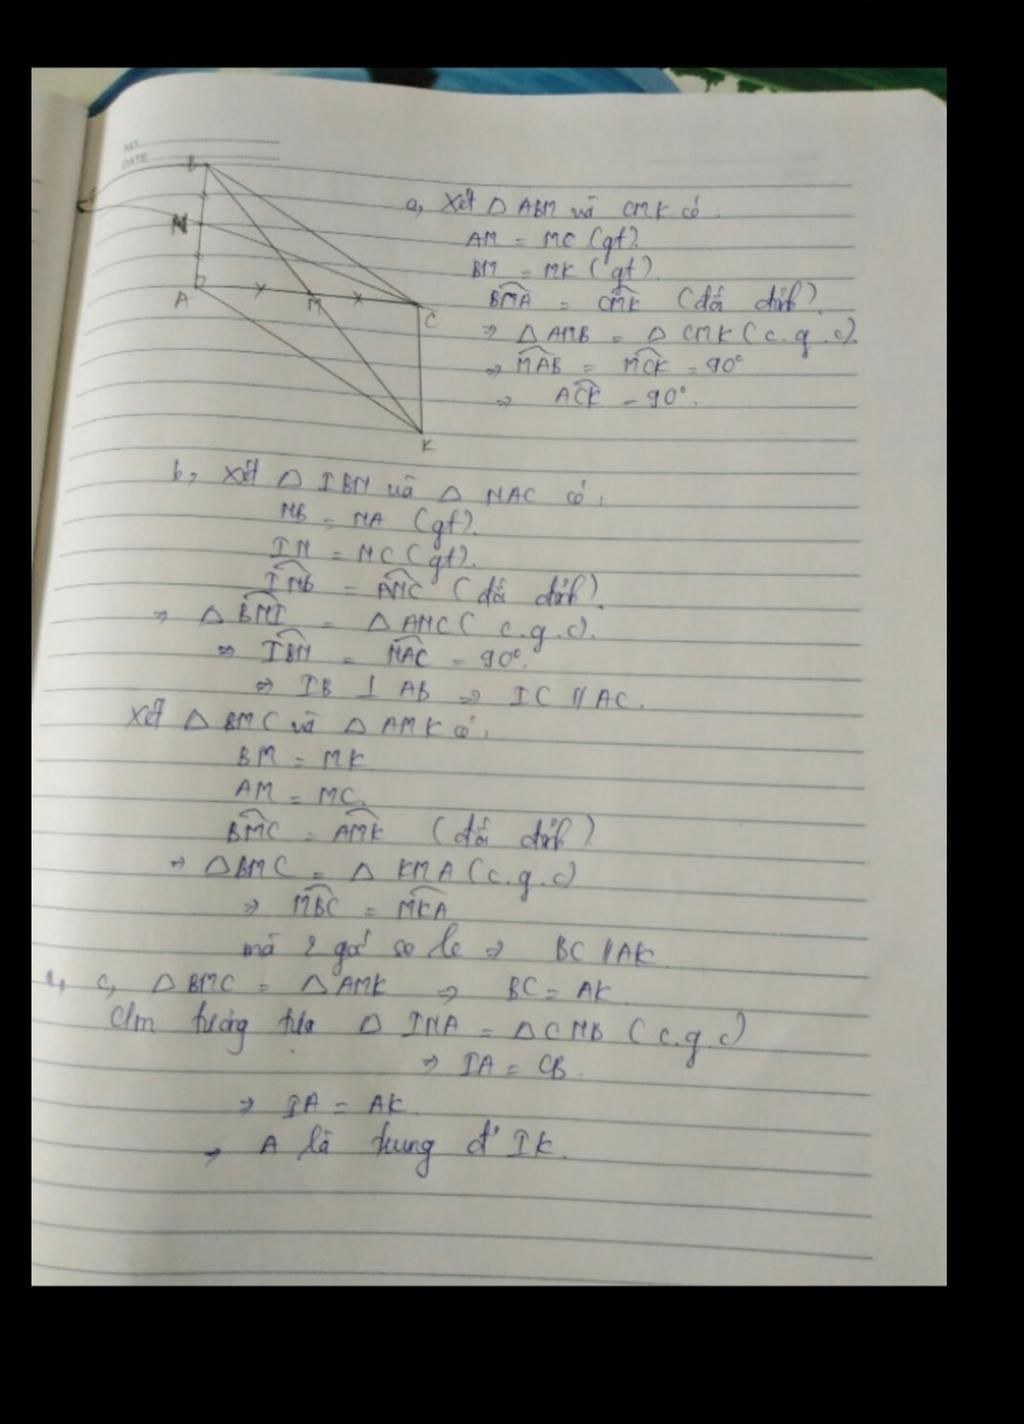 NO.
DATE
B
N
A
M
C
K
a, Xét △ ABM và CMK có.
AM = MC (gt).
BM = MK (gt).
BMA = CMK (đối đỉnh).
=> △ AMB = △ CMK (c.g.c).
=> MAB = MCK = 90°
=> ACK = 90°.
b, Xét △ IBN và △ NAC có.
NB = NA (gt).
IN = NC (gt).
INB = ANC (đối đỉnh).
=> △ BNI = △ ANC (c.g.c).
=> IBN = NAC = 90°.
=> IB ⊥ AB => IC // AC.
Xét △ BMC và △ AMK có.
BM = MK
AM = MC.
BMC = AMK (đối đỉnh)
=> △BMC = △ KMA (c.g.c)
=> MBC = MKA
mà 2 góc so le => BC // AK.
c, △ BMC = △ AMK => BC = AK.
C/m tương tựa △ INA = △CNB (c.g.c)
=> IA = CB.
=> IA = AK.
=> A là trung đ' IK.